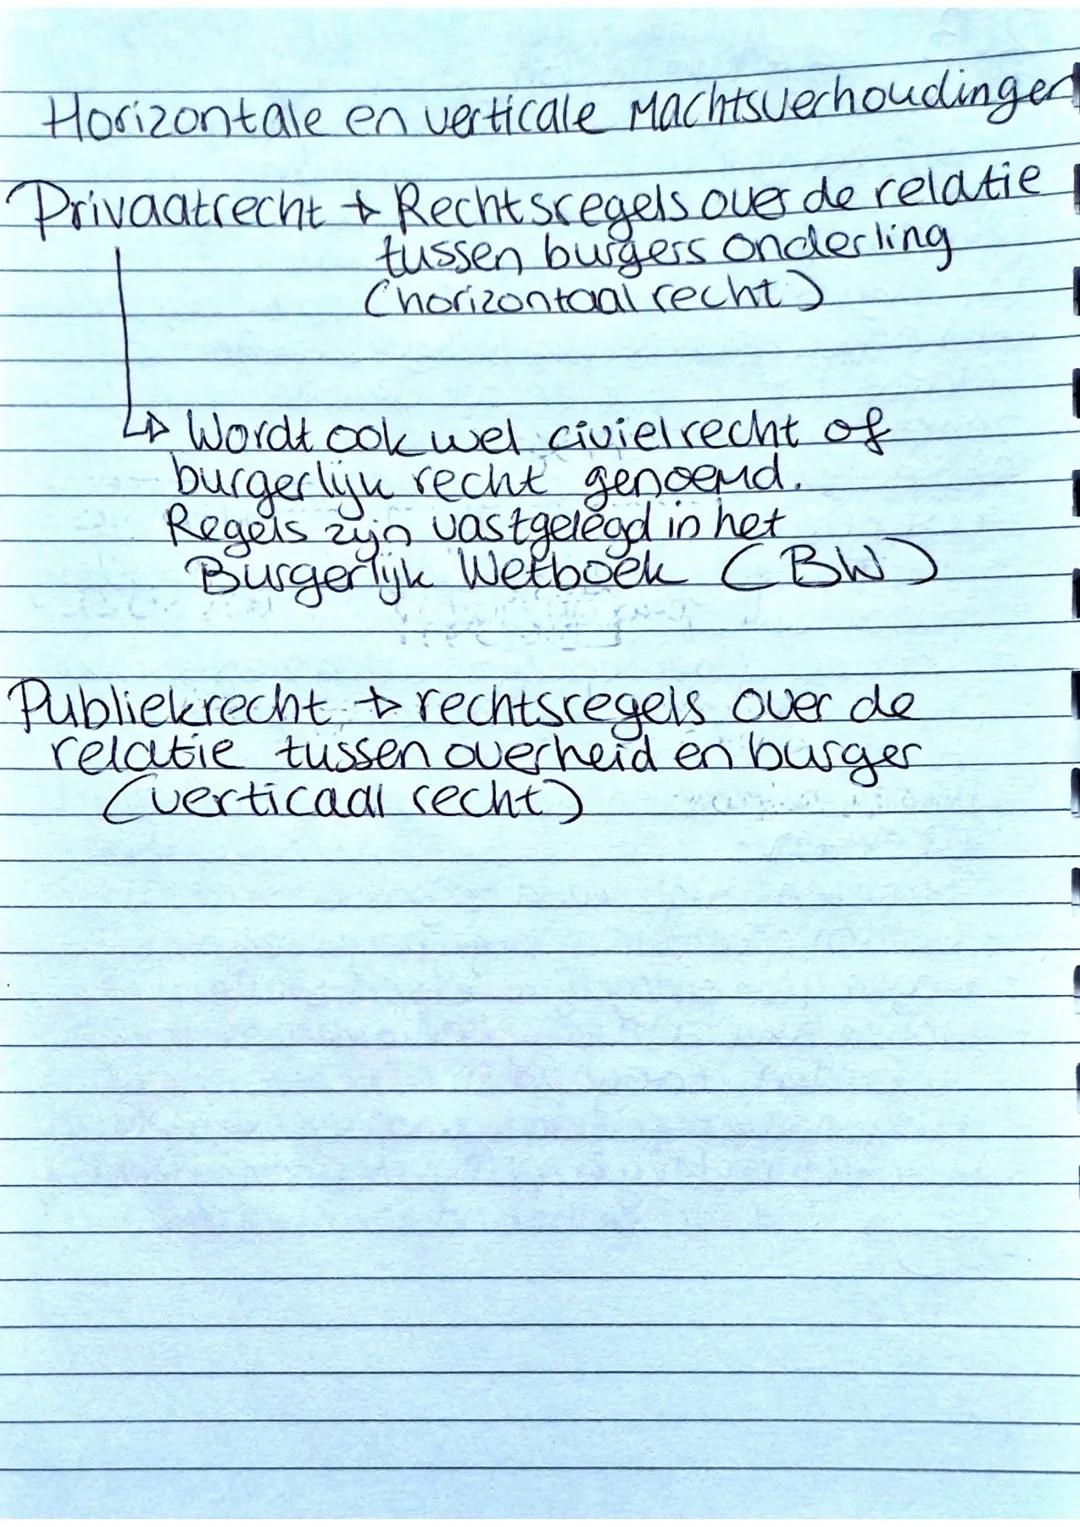 Horizontale en verticale Machtsverhoudingen
Privaatrecht → Rechtsregels over de relatie
tussen burgers onderling
(horizontaal recht)
↳ Wordt ook wel civielrecht of
burgerlijk recht genoemd.
Regels zijn vastgelegd in het
Burgerlijk Wetboek (BW)
Publiekrecht → rechtsregels over de
relatie tussen overheid en burger
(verticaal recht)